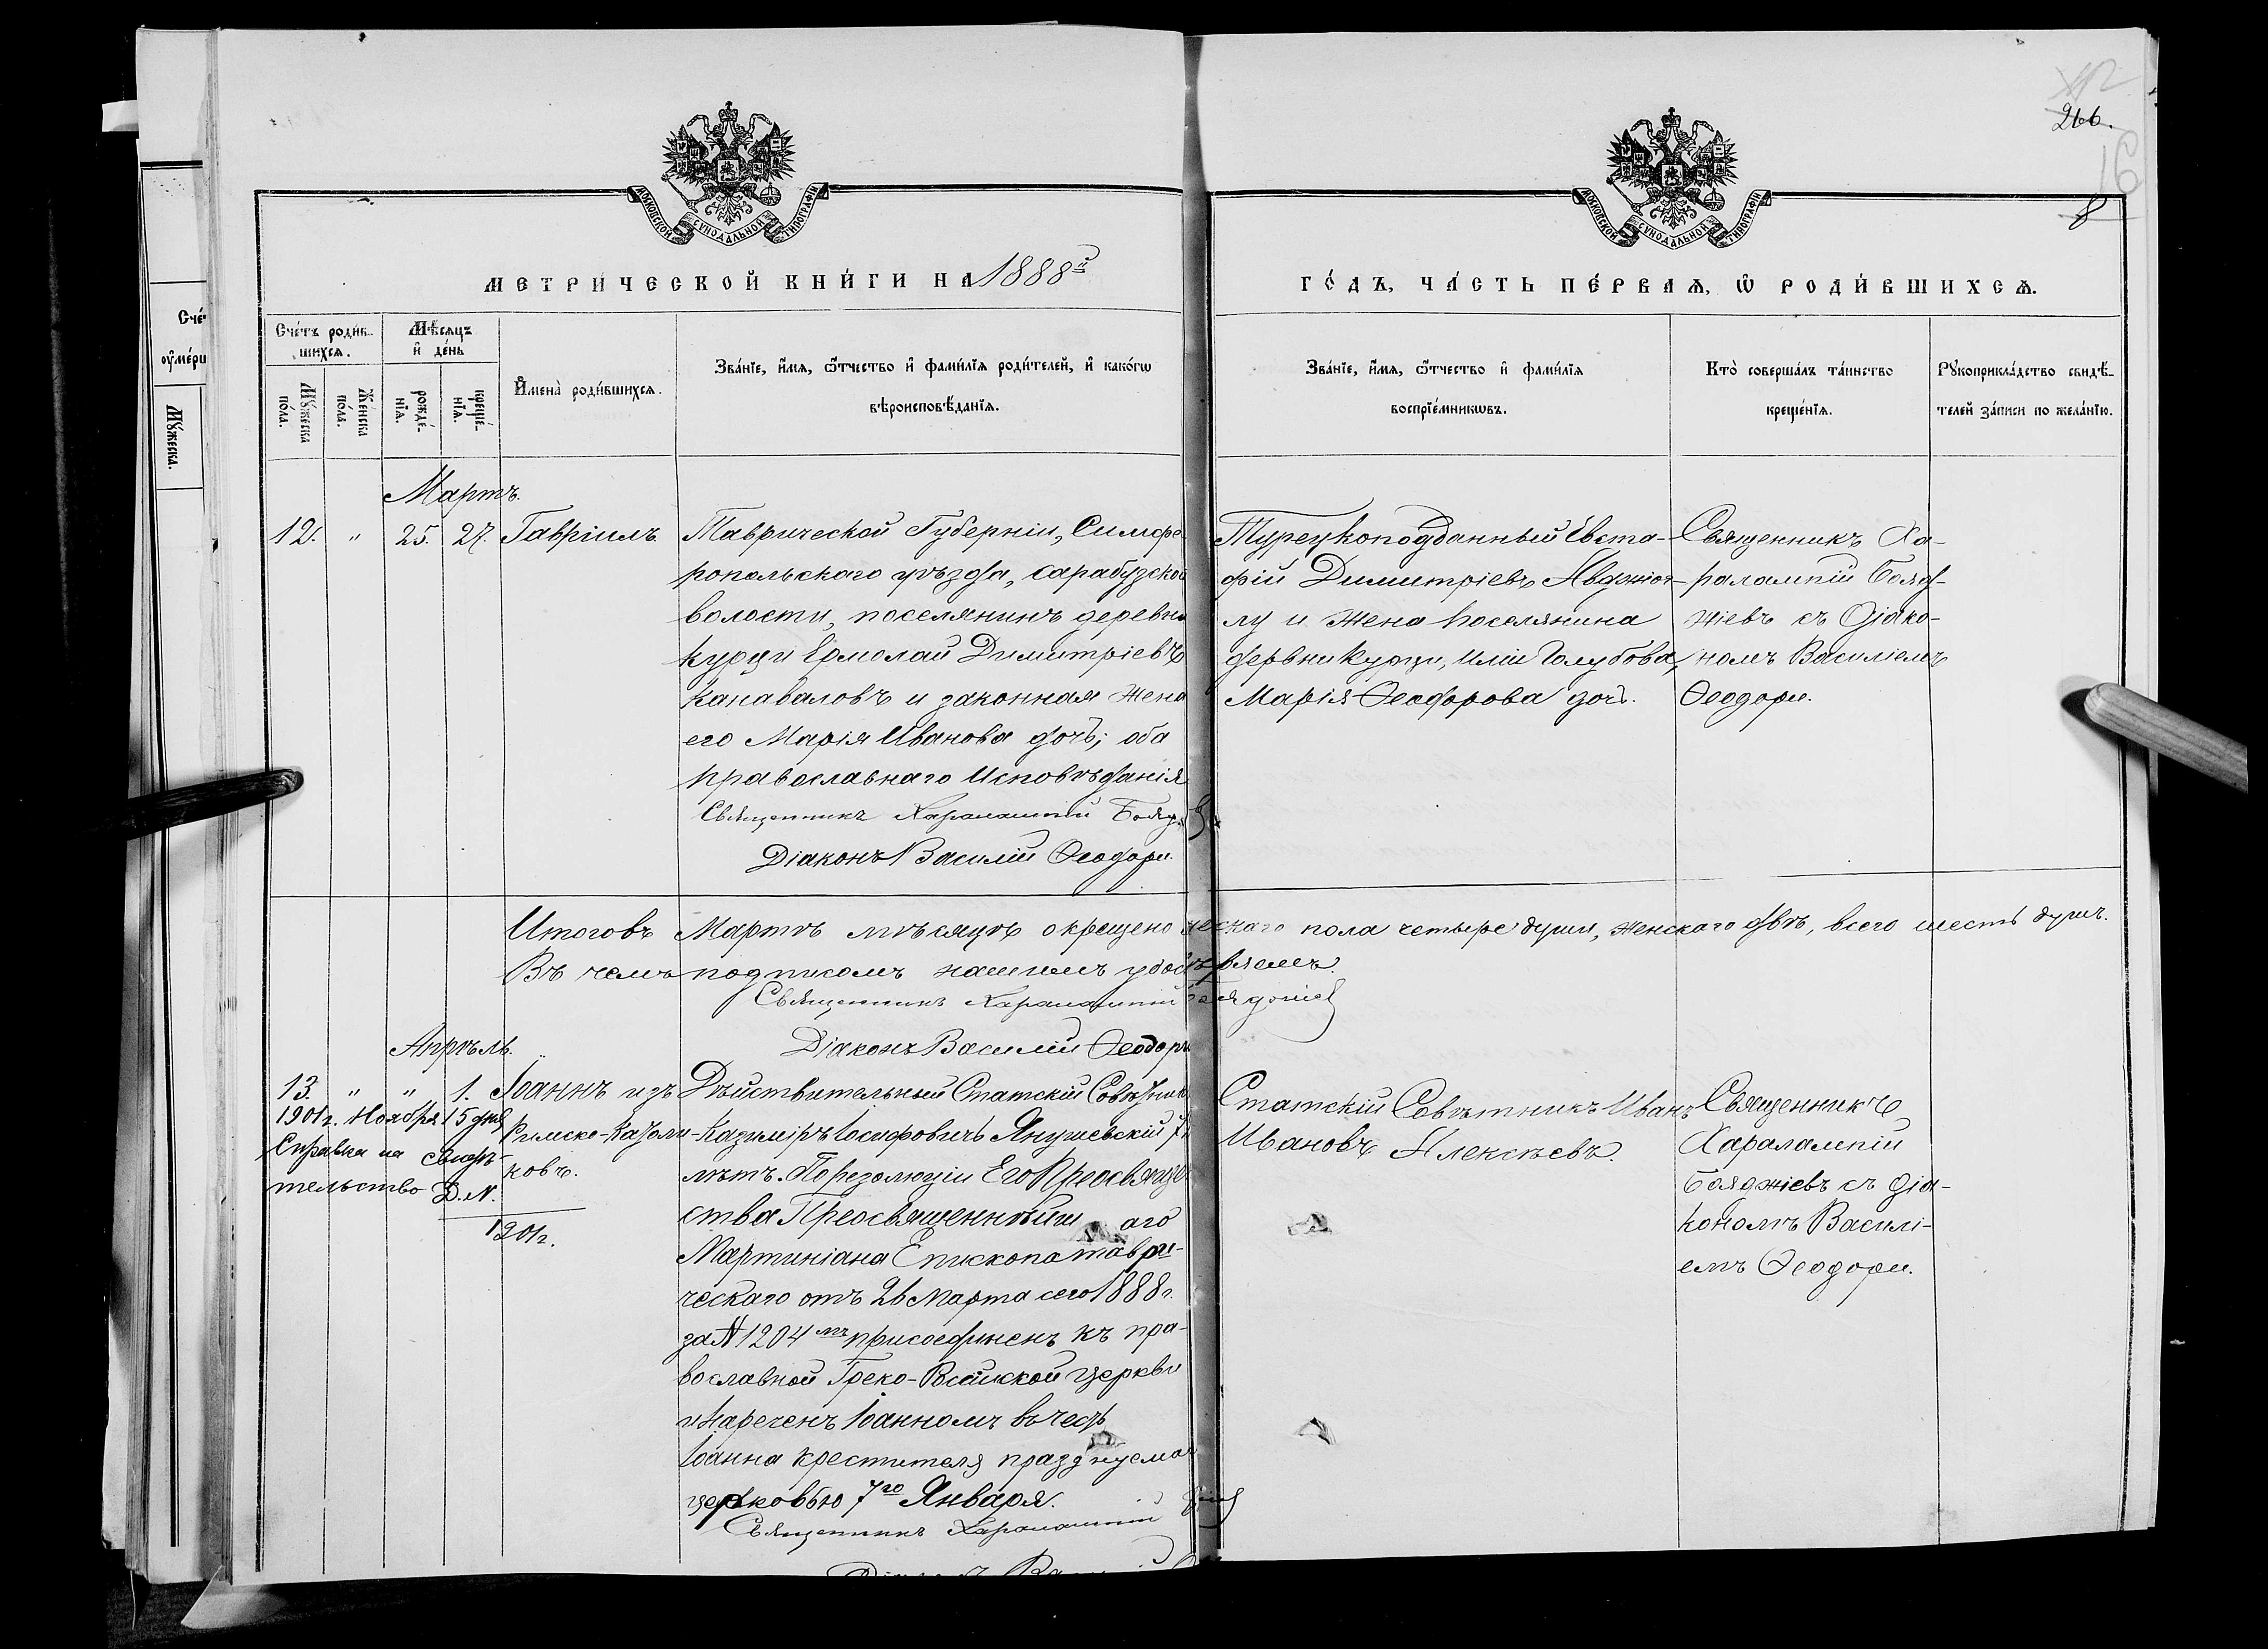 266.
16
8
МОСКОВСКОЙ СѴНОДАЛЬНОЙ ТИПОГРАФІИ
МОСКОВСКОЙ СѴНОДАЛЬНОЙ ТИПОГРАФІИ
МЕТРИ́ЧЕСКОЙ КНИ́ГИ НА 1888й
ГО́ДЪ, ЧА́СТЬ ПЕ́РВАѦ, Ѽ РОДИ́ВШИХСѦ.
Сче́тъ роди́вшихсѧ.
Мѣ́сяцъ и҆ де́нь
Мꙋ́жеска по́ла.
Же́нска по́ла.
рожде́нїѧ.
креще́нїѧ.
И҆мена̀ роди́вшихсѧ.
Зва́нїе, и҆́мѧ, ѻ҆́тчество и҆ фами́лїѧ роди́телей, и҆ како́гѡ
вѣроисповѣ́данїѧ.
Зва́нїе, и҆́мѧ, ѻ҆́тчество и҆ фами́лїѧ
воспрїе́мникѡвъ.
Кто̀ соверша́лъ та́инство
креще́нїѧ.
Рꙋкоприкла́дство свидѣ́-
телей за́писи по жела́нїю.
Мартъ.
12. " 25. 27. Гавріилъ.
Таврической Губерніи, Симфе
ропольскаго уѣзда, Сарабузской
волости, поселянинъ деревни
Курци Ермолай Димитріевъ
Канаваловъ и законная жена
его Марія Иванова дочь; оба
православнаго Исповѣданія
Священникъ Харалампій
Діаконъ Василій Ѳеодори.
Турецкоподданный Евста-
фій Димитріевъ
лу и жена поселянина
дервни Курци, Иліи Голубова,
Марія Ѳеодорова дочь.
Священникъ Ха-
ралампій Бояд-
жіевъ съ Діако-
номъ Василіемъ
Ѳеодори.
Итоговъ Мартѣ мѣсяцѣ окрещено ческаго пола четыре души, женскаго двѣ, всего шесть душъ.
Въ чемъ подписомъ нашимъ удостовѣряемъ.
Священникъ Харалампій Бояджіев
Діаконъ Василій Ѳеодори
Апрѣль.
13. " " 1. Іоаннъ изъ
Римско-Католи-
ковъ.
1901г. Ноября 15 дня
Справка на свидѣ-
тельство Д. N.
1901г.
Дѣйствительный Статскій Совѣтникъ
Казиміръ Іосифовичъ Янушевскій
лѣтъ. По резолюціи Его Преосвящен
ства Преосвященнѣйшаго
Мартиніана Епископа таври-
ческаго отъ 26 Марта сего 1888г.
за N 1204мъ присоединенъ къ пра-
вославной Греко-Россійской церкви
и Нареченъ Іоанномъ въ честь
Іоанна крестителя празднуема
церковью 7го Января.
Священникъ Харалампій
Статскій Совѣтникъ Иванъ
Ивановъ Алексѣевъ.
Священникъ
Харалампій
Бояджіевъ съ діа-
кономъ Василі-
емъ Ѳеодори.